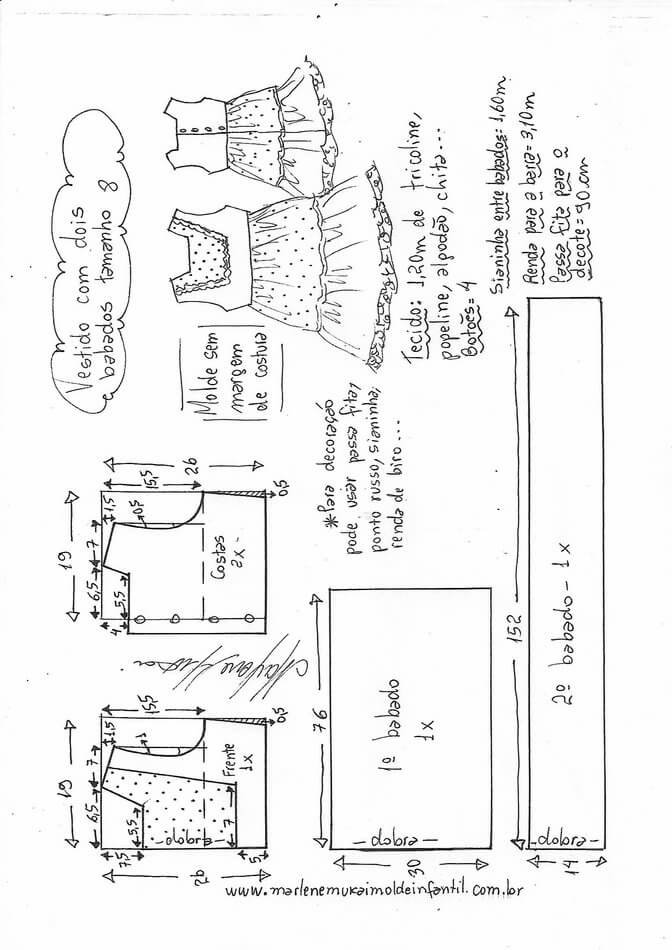 Vestido com dois
babados tamanho 8
Molde sem
margem
de costura
Tecido: 1,20m de tricoline,
popeline, algodão, chita...
Botões = 4
Sianinha entre babados: 1,60m
Renda para a barra = 3,10m
Passa fita para o
decote = 90cm
*Para decoração
pode usar passa fita,
ponto russo, sianinha,
renda de biro...
19
6,5
7
1,5
15,5
26
5,5
4
0,5
0,5
Costas
2x
19
6,5
7
1,5
15,5
1
5,5
7,5
26
7
5
0,5
Frente
1x
dobra
76
1º babado
1x
dobra
30
152
2º babado - 1x
dobra
14
www.marlenemukaimoldeinfantil.com.br